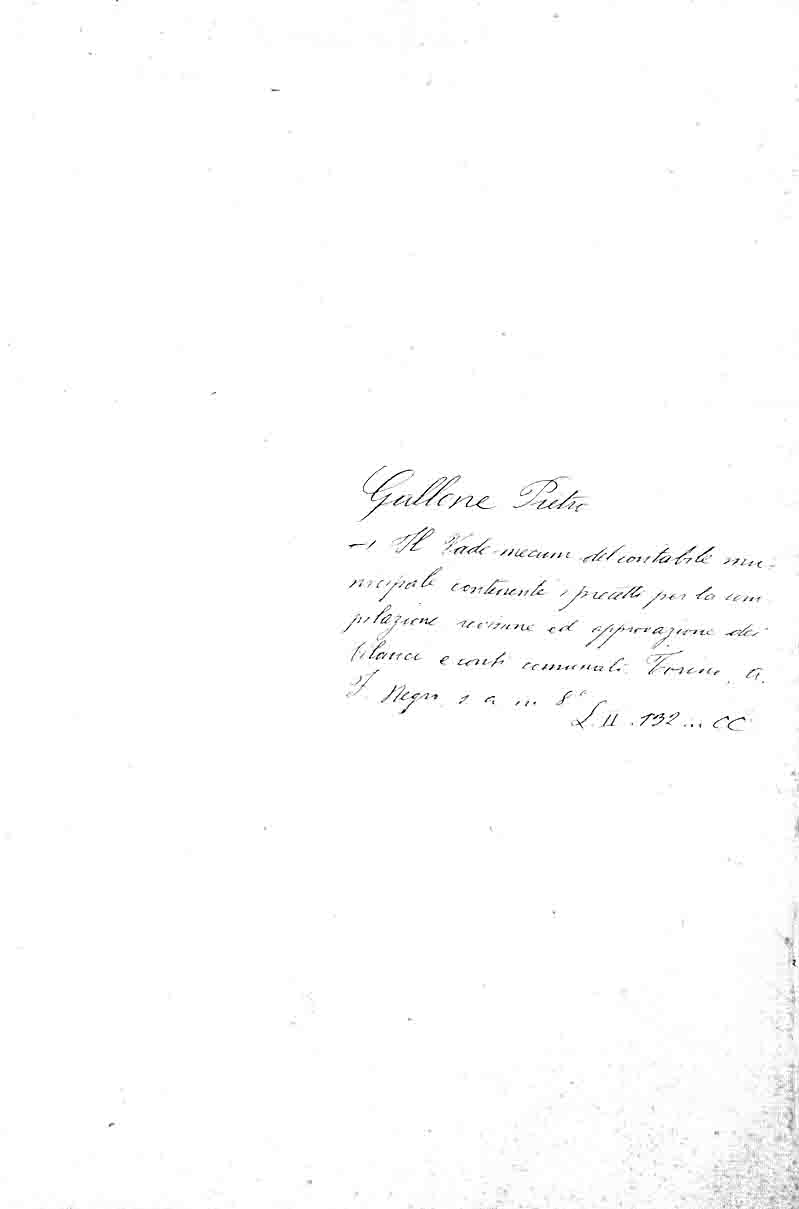 Gallone Pietro
— 1 Il Vade-mecum del contabile mu-
nicipale contenente i precetti per la com-
pilazione revisione ed approvazione dei
bilanci e conti comunali. Torino, G.
F. Negro s. a. in 8°
L. II. 132 .. CC